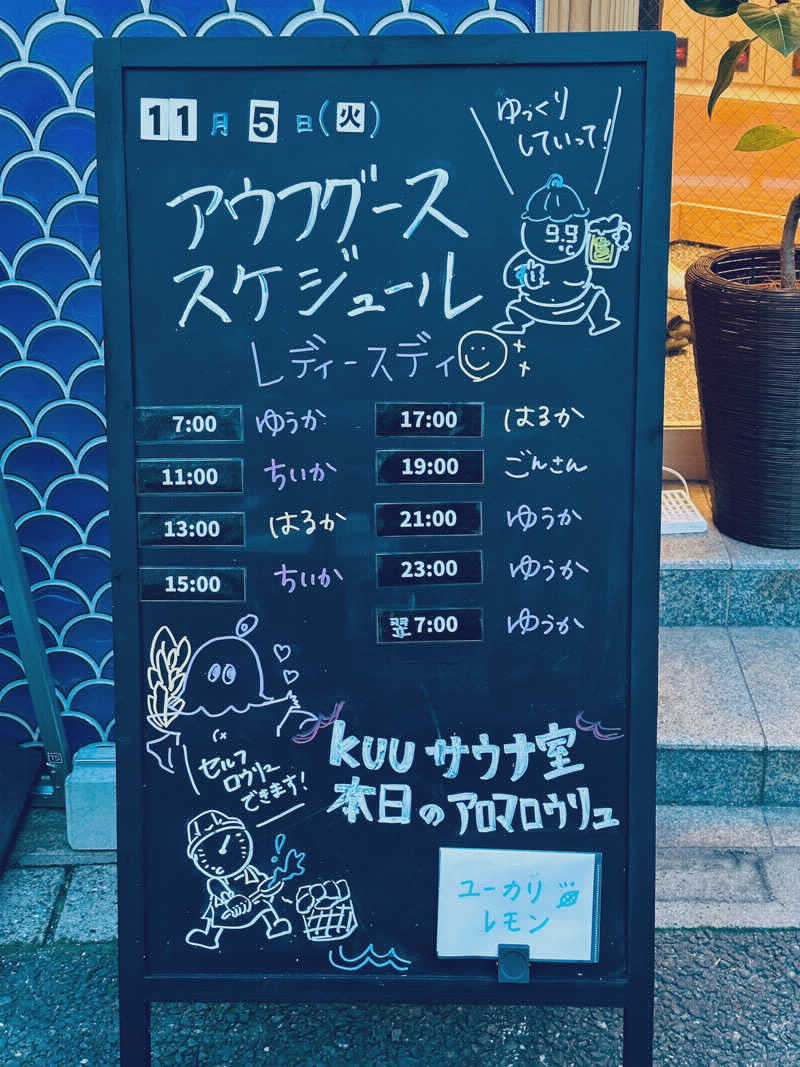 11月5日(火)
ゆっくり
していって!
アウフグース
スケジュール
レディースディ
99
℃
7:00 ゆうか
11:00 ちいか
13:00 はるか
15:00 ちいか
17:00 はるか
19:00 ごんさん
21:00 ゆうか
23:00 ゆうか
翌7:00 ゆうか
セルフ
ロウリュー
できます!
KUU サウナ室
本日のアロマロウリュ
ユーカリ
レモン